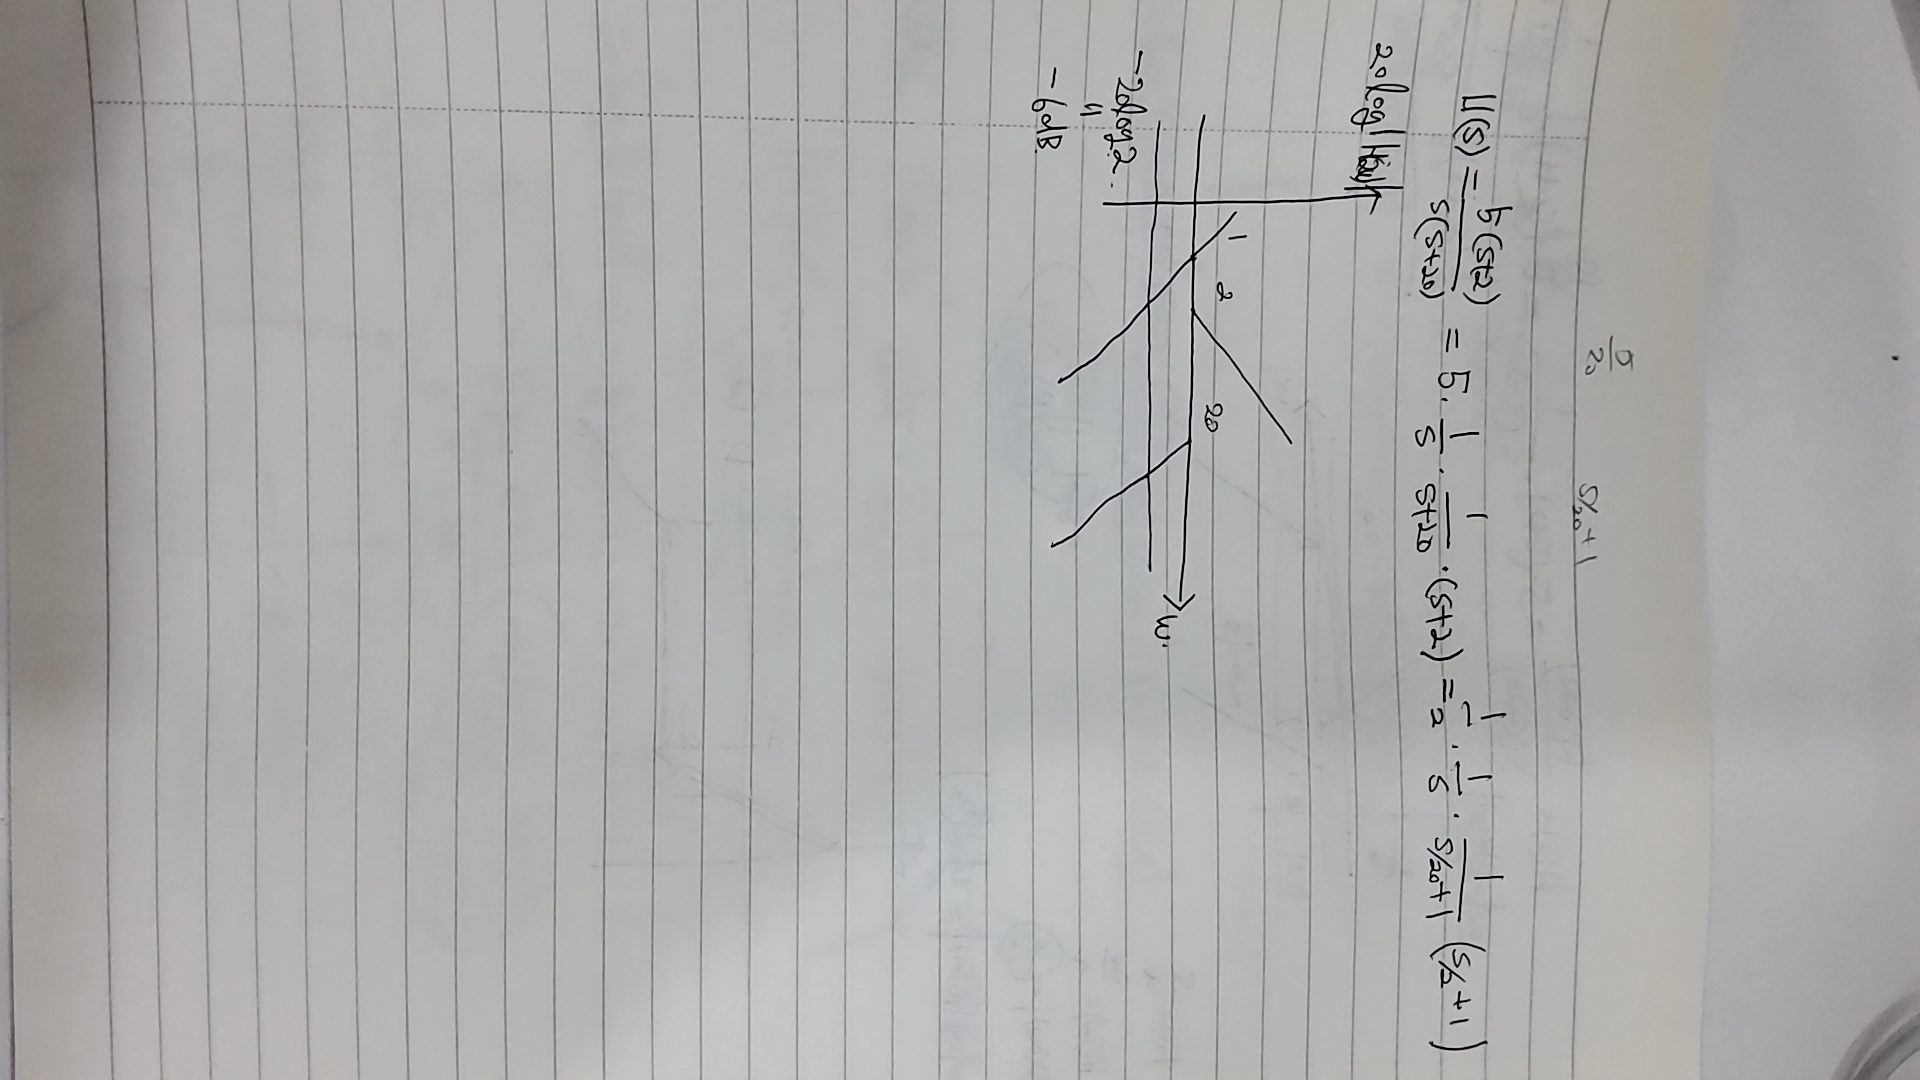 5/20
S/20 + 1
H(S) = 5(S+2) / S(S+20) = 5 · 1/S · 1/S+20 · (S+2) = 1/2 · 1/S · 1/S/20+1 (S/2 +1)
20log|H(jω)|
1 2 20
ω
-20log2
=
-6dB